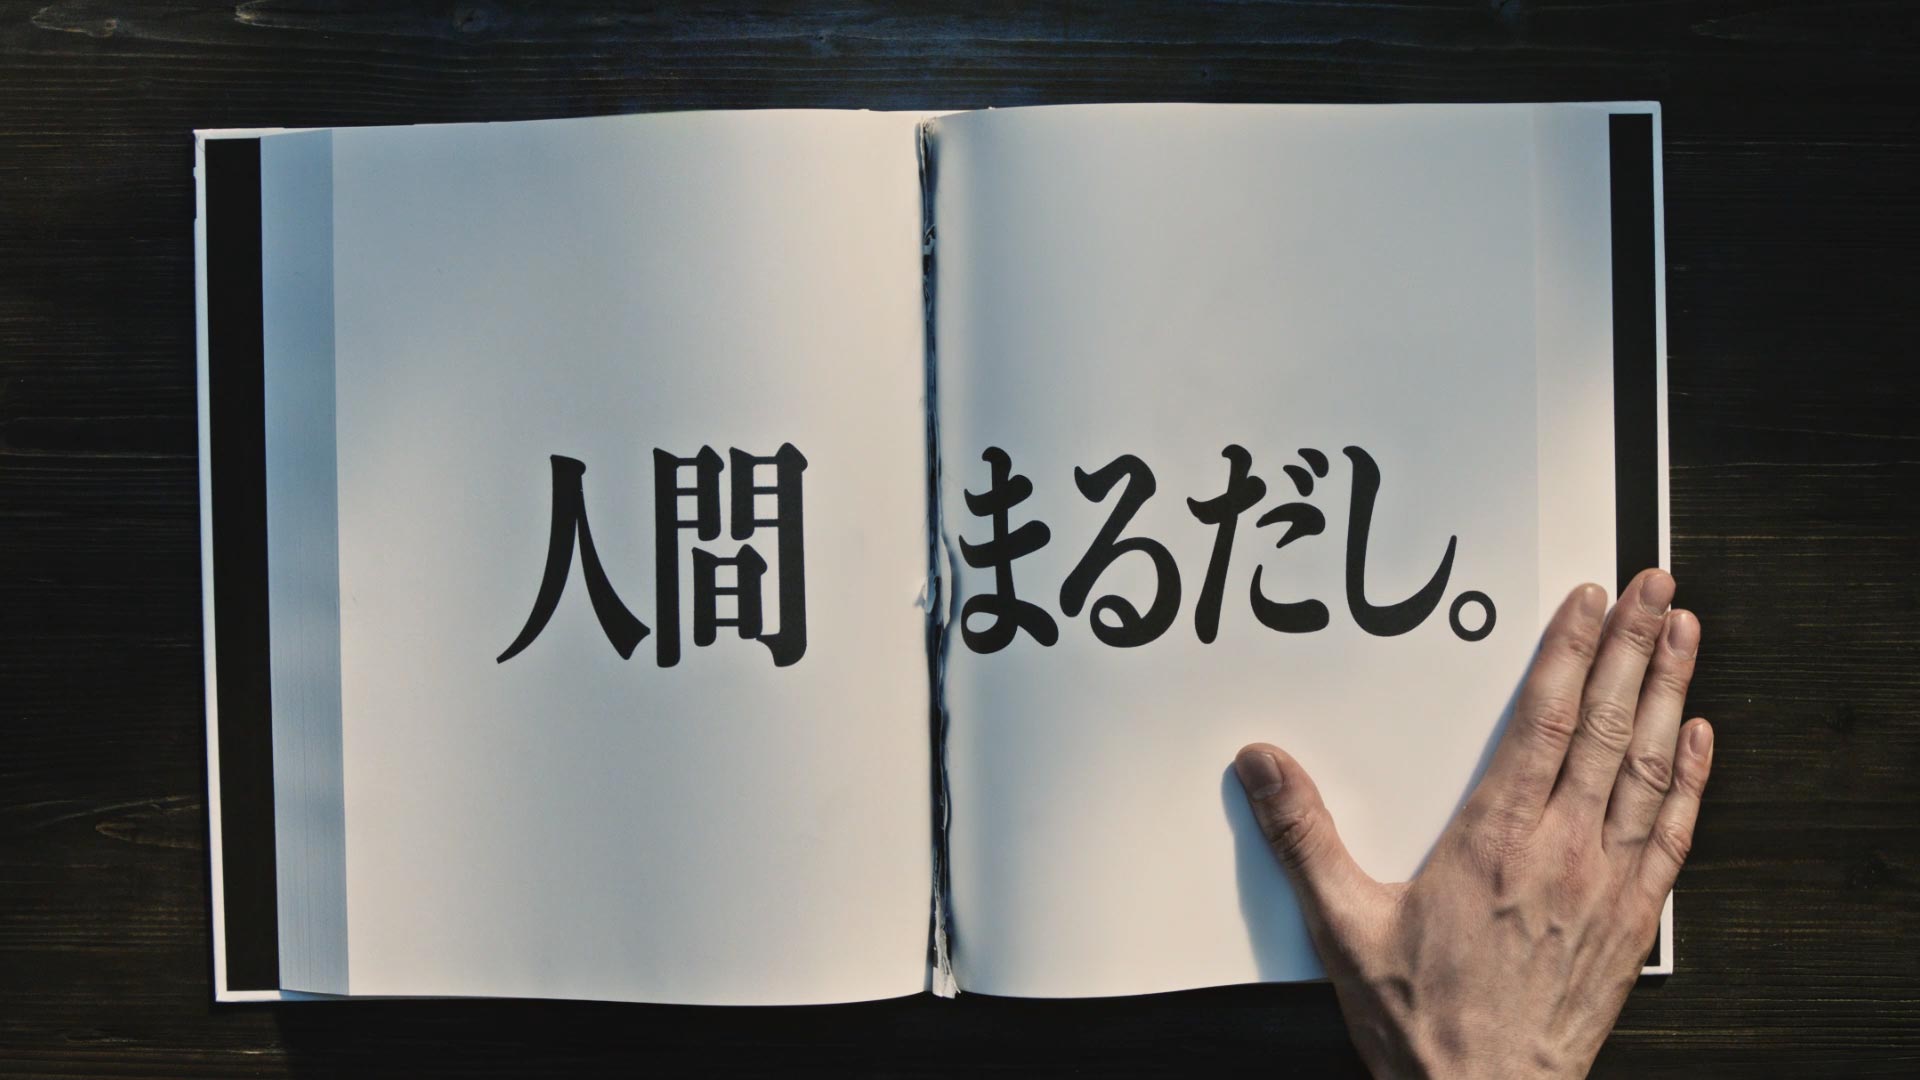 人間まるだし。